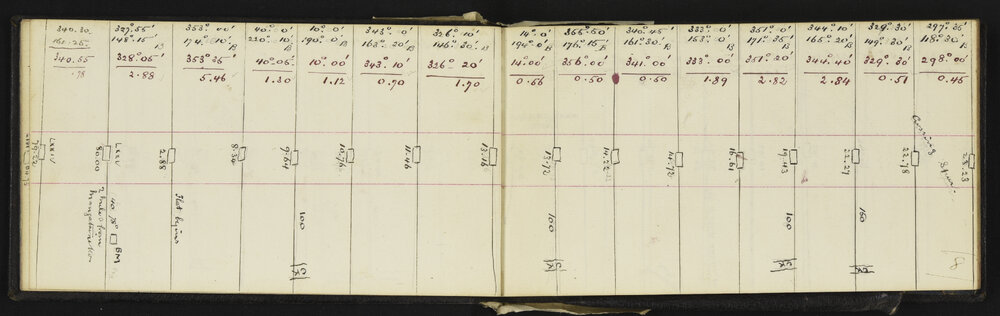 340.30.
161.25.
340.55
.78
327.55'
148.15' B
328.05'
2.88
353.00'
174.10' B
353°35
5.46
40.0'
220.10' B
40°05
1.30
10°.0'
190°.0' B
10°.00
1.12
343°.0'
163.20' B
343°.10'
0.70
326°.10'
146.30' B
326°.20'
1.70
14°.0'
194°.0' B
14°.00'
0.56
355.50'
176.15' B
356°.00'
0.50
340°.45'
161°.30' B
341°.00'
0.50
333°.0'
153°.0' B
333°.00
1.89
351°.0'
171°.35 B
351°.20
2.82
344°.10'
165°.20' B
344.40
2.84
329°.30'
149.30' B
329°.30'
0.51
297°.35'
118°.30' B
298°.00
0.45
79.22
LXXIV
80.00
LXXV
2.88
8.34
9.64
10.76
11.46
13.16
13.72
14.22
14.72
16.61
19.43
22.27
22.78
28.23
Crossing Spur
40.78 BM
2 links from
Flat begins
100
CK
100
CK
100
CK
150
CK
8